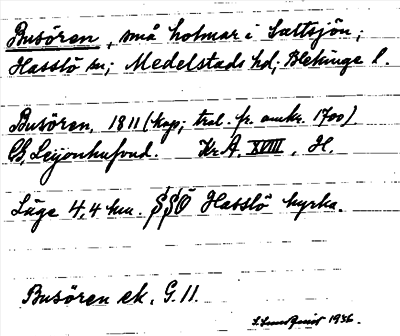 Busören, små holmar i Saltsjön;
Hasslö sn; Medelstads hd; Blekinge l.
Busören, 1811 (kap; tral. fr. omkr. 1700).
CG. Leijonhufvud. Kr A. XVIII, H.
Läge 4,4 km. SSO Hasslö kyrka.
Busören ek. G. 11.
S. Lundquist 1936.